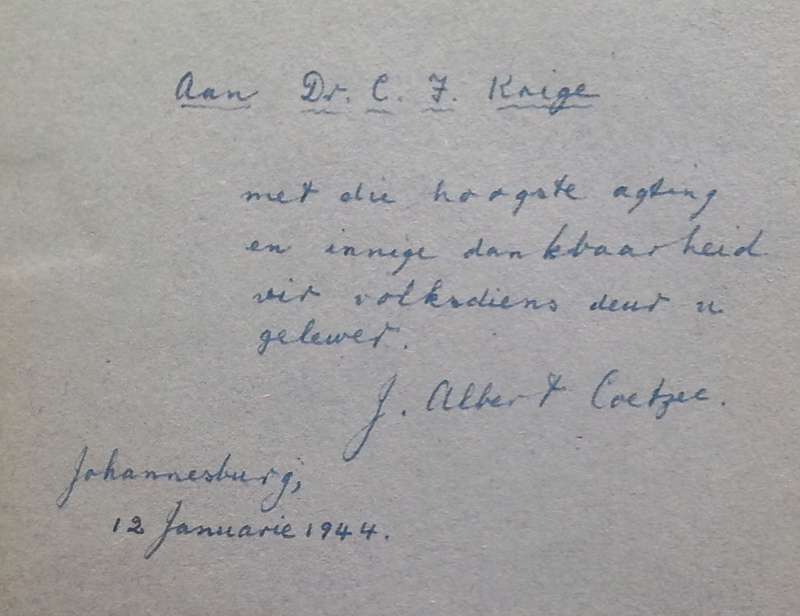 Aan Dr. C. F. Krige
met die hoogste agting
en innige dankbaarheid
vir volksdiens deur u
gelewer.
J. Albert Coetzee.
Johannesburg,
12 Januarie 1944.